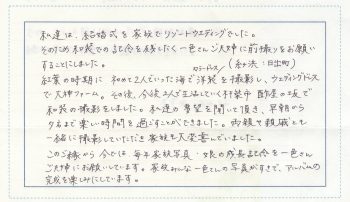 私達は、結婚式を家族でリゾートウエディングでした。
そのため和装での記念を残したく一色さんご夫婦に前撮りをお願い
することにしました。
カラードレス (和浜・日出町)
紅葉の時期に 初めて2人でいった海で洋装を撮影し、ウェディングドレス
で大神ファーム。その後、今後2人で生活していく杵築市 酢屋の坂で
和装の撮影をしました。私達の要望を聞いて頂き、早朝から
夕方まで楽しい時間を過ごすことができました。両親も親戚も
一緒に撮影していただき家族も大変喜んでいました。
このご縁から 今では 毎年家族写真・娘の成長記念を一色さん
ご夫婦にお願いしています。家族みんな一色さんの写真が好きで、アルバムの
完成を楽しみにしています。